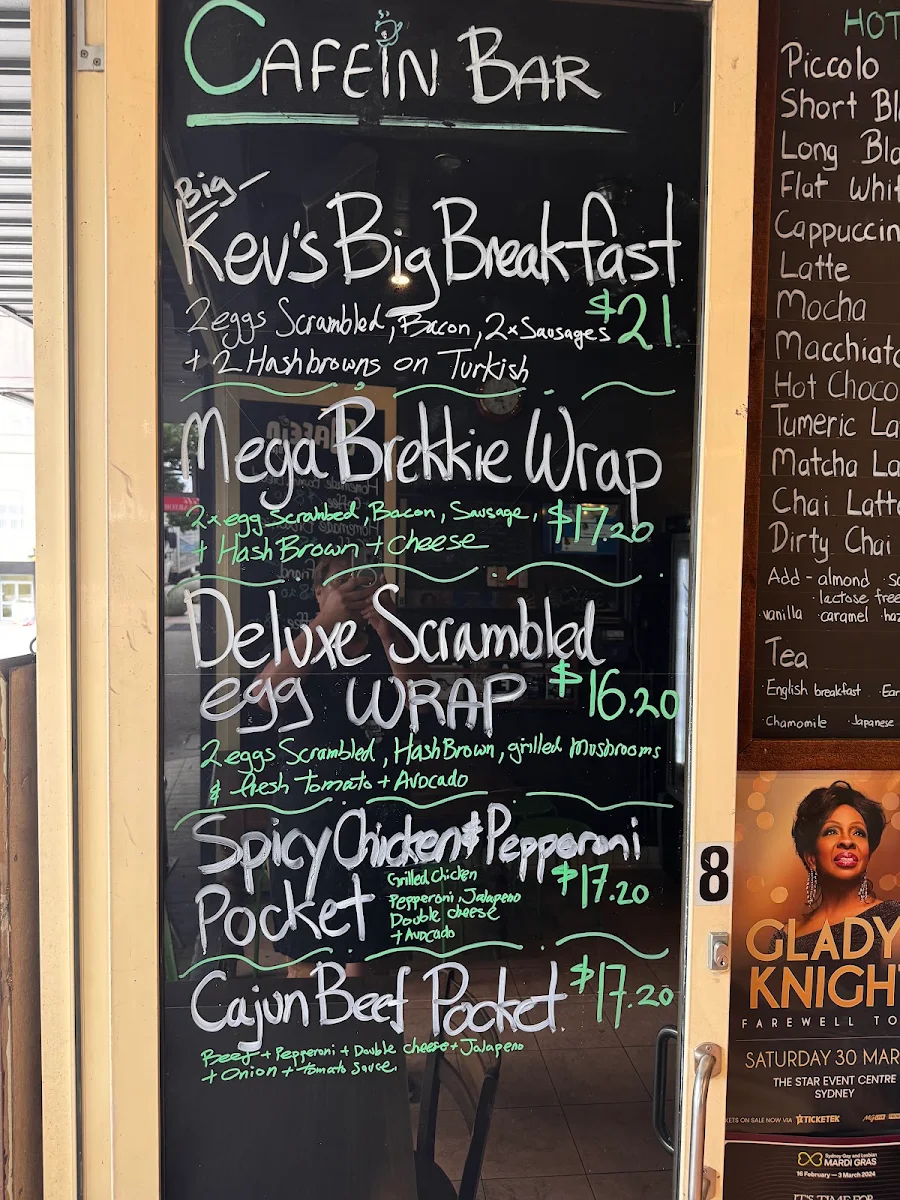 CAFEÏN BAR
Big
Kev's Big Breakfast
2 eggs Scrambled, Bacon, 2x Sausages $21.
+ 2 Hashbrowns on Turkish
Mega Brekkie Wrap
2x egg Scrambed, Bacon, Sausage, $17.20
+ Hash Brown + cheese
Deluxe Scrambled
egg WRAP $16.20
2 eggs Scrambled, Hash Brown, grilled Mushrooms
& fresh Tomato + Avocado
Spicy Chicken & Pepperoni
Pocket
Grilled Chicken
Pepperoni, Jalapeno
Double cheese
+ Avocado
$17.20
Cajun Beef Pocket $17.20
Beef + Pepperoni + Double cheese + Jalapeno
+ Onion + Tomato Sauce.
HOT
Piccolo
Short Bl
Long Bla
Flat Whit
Cappuccin
Latte
Mocha
Macchiato
Hot Choco
Tumeric La
Matcha La
Chai Latte
Dirty Chai
Add - almond · so
· lactose free
· vanilla · caramel · haz
Tea
· English breakfast · Ear
· Chamomile · Japanese
8
GLADY
KNIGH
FAREWELL TO
SATURDAY 30 MAR
THE STAR EVENT CENTRE
SYDNEY
ETS ON SALE NOW VIA TICKETEK
Sydney Gay and Lesbian
MARDI GRAS
16 February – 3 March 2024
IT'S TIME FOR